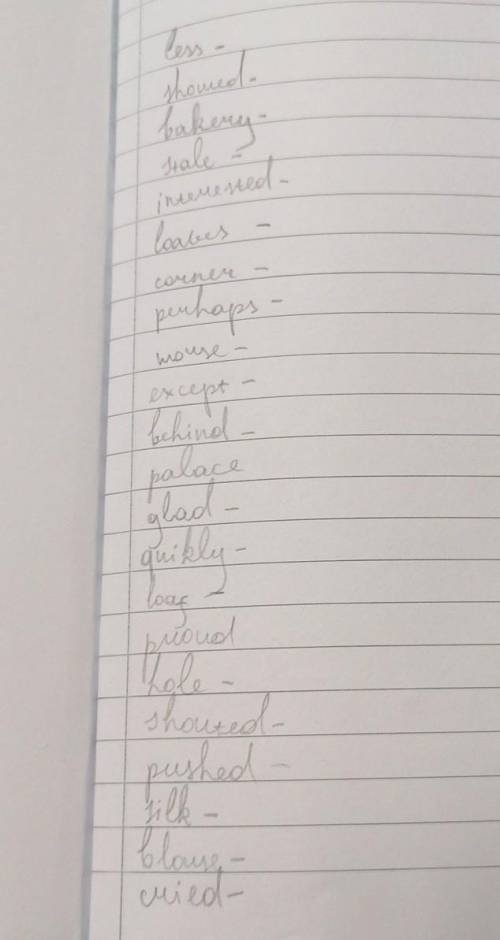 less -
showed -
bakery -
stale -
interested -
loaves -
corner -
perhaps -
mouse -
except -
behind -
palace
glad -
quikly -
loaf -
proud
hole -
shouted -
pushed -
silk -
blouse -
cried -